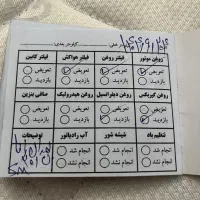 کیلومتر بعدی:
روغن موتور فیلتر روغن فیلتر هواکش فیلتر کابین
تعویض تعویض تعویض تعویض
بازدید بازدید بازدید بازدید
روغن گیربکس روغن دیفرانسیل روغن هیدرولیک صافی بنزین
تعویض تعویض تعویض تعویض
بازدید بازدید بازدید بازدید
تنظیم باد شیشه شور آب رادیاتور توضیحات
انجام شد انجام شد انجام شد
انجام نشد انجام نشد انجام نشد